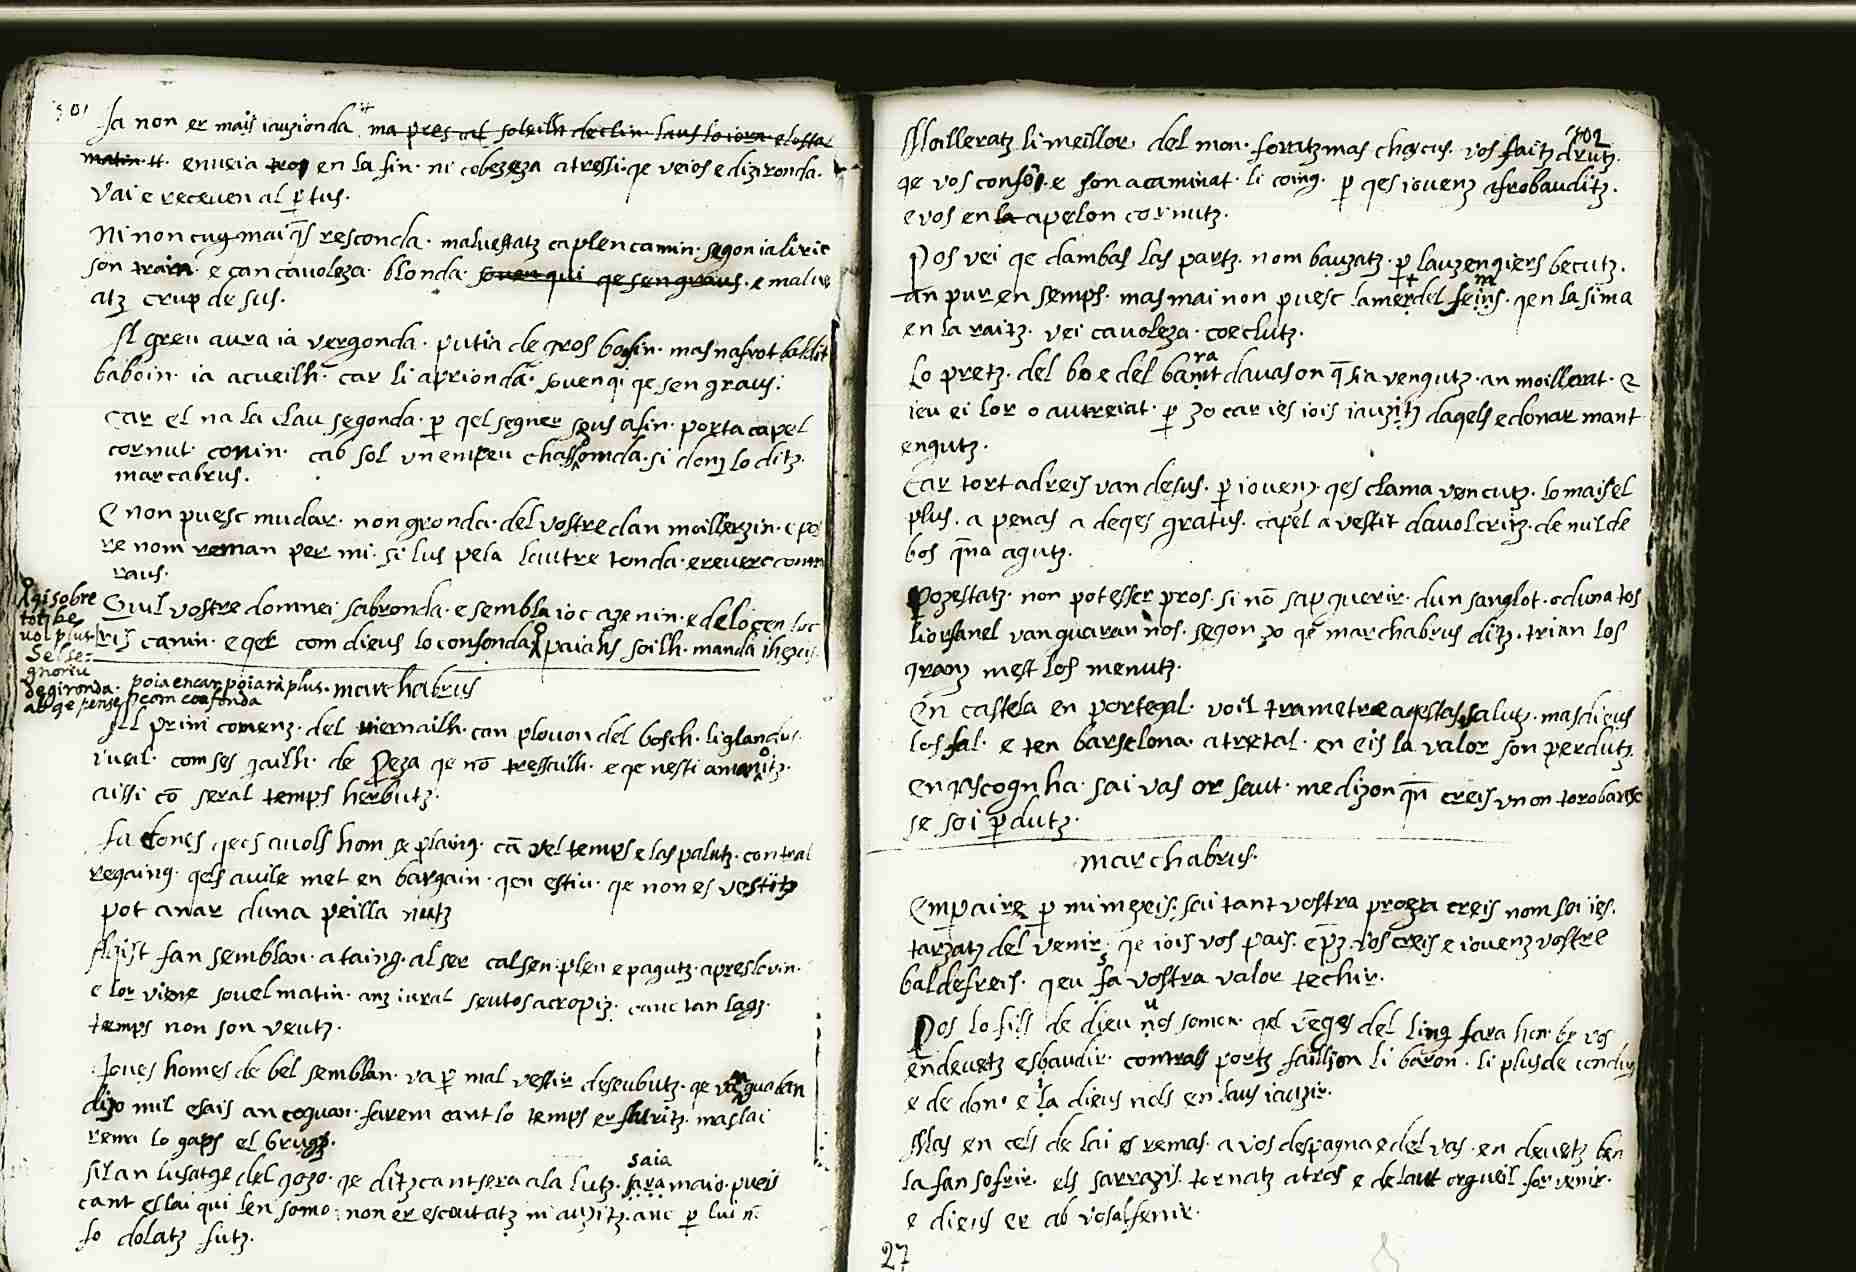 501
Ja non er mais iauzionda ma pres al soleilh declin laus lo iorn e lostal
matin. enueia tros en la fin. ni cobezeza atressi. qe veios e dizironda.
vai e receuen al p tus.
Ni non cug mai qs resconda. maluestatz caplen camin. segon ia li ric
son train. e can cauoleza. blonda. souen qui qe sen graus. e malue
atz crup de sus.
Al greu aura ia vergonda. putia de gros bosin. mas nafrot baldit
baboin. ia acueilh. car li aprionda. souen qi qe sen graus.
Car el na la clau segonda. p qel segner sous asin. porta capel
cornut conin. cab sol vn empeu chassonda. si doni lo ditz.
marcabrus.
E non puesc mudar. non gronda. del vostre dan moillerzin. e pe
re nom reman per mi. si lus pela lautre tonda. e reuerc contra
raus.
Qiul vostre domnei sabronda. e sembla ioc azenin. e de logen loc
ris camin. e qel com dieus lo confonda paians soilh. manda ihezus.
qi sobre
tot be
uol plus
Sel se-
gnoriu
de gironda. poia encar poiara plus. marchabrus
ab qe pense com confonda
Al prim comenz. del iuernailh. can plouon del bosch. li glandus.
vueil. com ses quilh. de peza qe no tressailh. e qe nesti amanoitz.
aissi co seral temps herbutz.
Ja dones qecs auols hom se plaing. ca vel temps e las palutz. contral
regaing. qels auile met en bargain. qen estiu. qe non es vestitz
pot anar duna peilla nutz
Aqist fan semblan. ataing. al ser calsen. plen e pagutz. apres lo vin.
e lor viene souel matin. anz iural seutos acropiz. canc tan lagz.
temps non son veutz.
Joues homes de bel semblan. va p mal vestir deseubutz. qe van guaban
dizo mil esais an coguan. farem cant lo temps er fluritz. mas lai
rema lo gaps el brugs.
Silan lusatge del gozo. qe ditz cant sera a la lutz. saia
fara maio. pueis
cant es lai qui len somo. non er escoutatz ni auzitz. anc p lui n.
fo dolatz futz.
502
Moilleratz li meillor del mon. foratz mas chascus. vos faitz drutz.
qe vos confon. e son acaminat. li coing. p qes iouenz afrobauditz.
e vos en la apelon cornutz.
Pos vei qe dambas las partz. nom bauzatz. p lauzengiers becutz.
an pur en semps. mas mai non puesc lamerdel feins. qen la sima
en la raitz. vei cauoleza. coeclutz.
Lo pretz. del bo e del barat dauas on q sia vengutz. an moillerat. e
ieu ei lor o autreiat. p zo car ies iois iauzitz daqels e donar mant
engutz.
Car tort adreis van desus. p iouenz. qes clama vencutz. lo mais el
plus. a penas a deqes gratus. capel a vestit dauol critz. de nul de
bos qna agutz.
Pozestatz. non pot esser pros. si no sap querir. dun sanglot. o duna tos
li orfanel van guaran nos. segon zo qe marchabrus ditz. trian los
granz mest los menutz.
En castela en portegal. voil trametre aqestas salutz. mas dieus
los sal. e ten barselona. atretal. en eis la valor son perdutz.
En gascogn ha. sai vas or saut. me dizon qn creis vnon torobar ise
se soi pdutz.
marchabrus.
Empaire p mi mezeis. sai tant vostra proeza creis nom soi ies.
tarzatz del venir. qe iois vos pais. e pz. vos creis e iouenz vostre
baldefreis. qeu fa vostra valor techir.
Pos lo fils de dieu nos somon. qel venges del ling fara hon. be vos
en deuetz esbaudir. contrals portz faillion li baron. li plus de conduig
e de don. e ia dieus nols en laus iauzir.
Mas en cels de lai es remas. a vos despagna e del vas. en deuetz ben
la fan sofrir. els sarrazis. tornatz atras e de laut orgueil. for venir.
e dieus er ab vos al fenir.
27